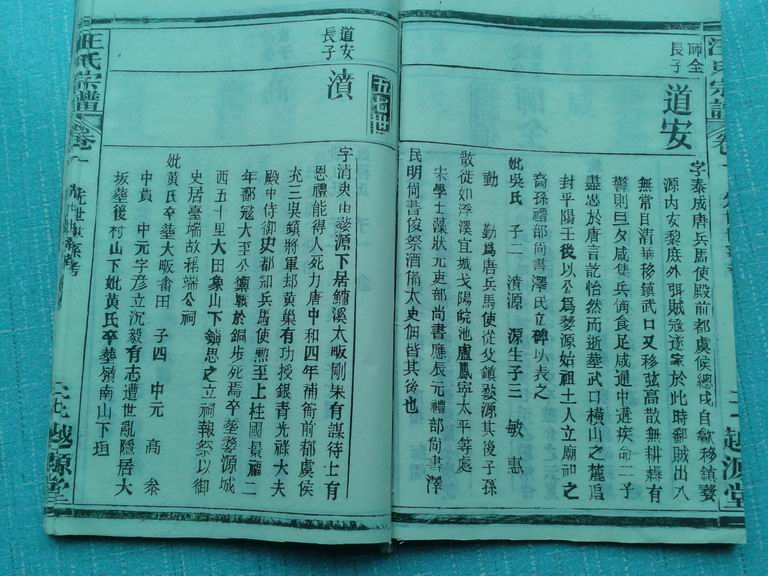 汪氏宗譜
越源堂
師全
長子
道安
字泰成唐兵馬使殿前都虞候總戎自歙移鎮婺
源內安黎庶外弭賊寇遂家於此時鄱賊出入
無常自清華移鎮武口又移弦高散無耕藉有
警則旦夕咸集兵俻食足咸通中遘疾命二子
盡忠於唐言訖怡然而逝葬武口橫山之麓追
封平陽王後以公爲婺源始祖土人立廟祀之
裔孫禮部尚書澤民立碑以表之
妣吳氏 子二 濆源 源生子三 敏 惠
勤 勤爲唐兵馬使從父鎮婺源其後子孫
散徙如浮溪宣城弋陽皖池廬鳳寧太平等處
宋學士藻狀元吏部尚書應辰元禮部尚書澤
民明尚書俊祭酒偹太史佃皆其後也
五十七世
道安
長子
濆
字清夷由婺源下居鱅溪大畈剛果有謀待士有
恩禮能得人死力唐中和四年補衙前都虞侯
充三吳鎮將軍却黄巢有功授銀青光祿大夫
殿中侍御史都知兵馬使勲至上柱國景福二
年鄱寇大至公禦戰於銅步死焉卒葬婺源城
西五十里大田象山下鎮思之立祠報祭以御
史居臺端故稱端公祠
妣黄氏卒葬大畈畲田 子四 中元 髙 叅
中賁 中元字彦立沉毅有志遭世亂隱居大
坂葬後村山下妣黄氏卒葬嶺南山下垣
汪氏宗譜
卷一
先世世系考
越源堂